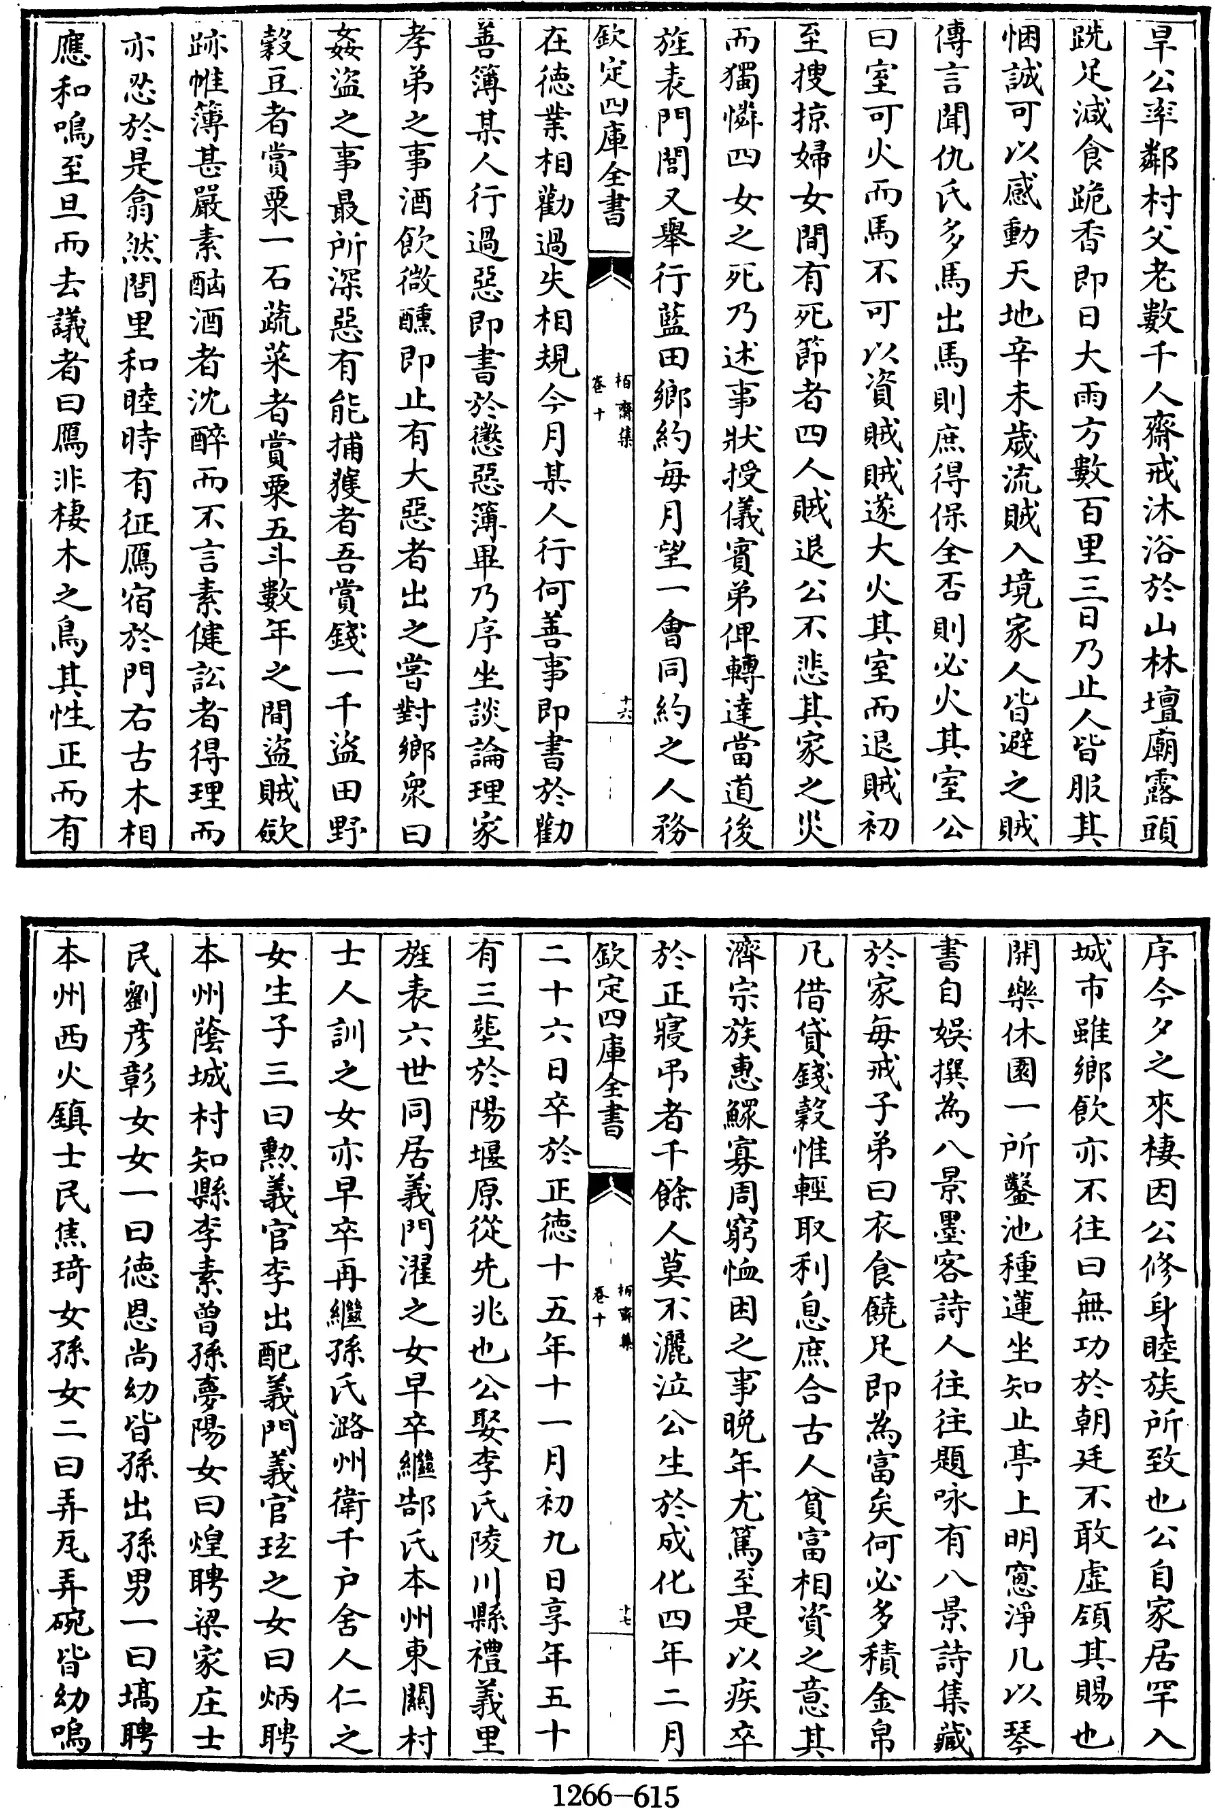 旱公率鄰村父老數千人齋戒沐浴於山林壇廟露頭
跣足減食跪香即日大雨方數百里三日乃止人皆服其
悃誠可以感動天地辛未歲流賊入境家人皆避之賊
傳言聞仇氏多馬出馬則庶得保全否則必火其室公
曰室可火而馬不可以資賊賊遂大火其室而退賊初
至搜掠婦女間有死節者四人賊退公不悲其家之災
而獨憐四女之死乃述事狀授儀賓弟俾轉達當道後
旌表門閭又舉行藍田鄉約每月望一會同約之人務
欽定四庫全書
栢齋集
卷十
十六
在德業相勸過失相規今月某人行何善事即書於勸
善簿某人行過惡即書於懲惡簿畢乃序坐談論理家
孝弟之事酒飲微醺即止有大惡者出之嘗對鄉衆曰
姦盜之事最所深惡有能捕獲者吾賞錢一千盜田野
穀豆者賞粟一石蔬菜者賞粟五斗數年之間盜賊歛
跡帷簿甚嚴素酗酒者沈醉而不言素健訟者得理而
亦忍於是翕然閭里和睦時有征鴈宿於門右古木相
應和鳴至旦而去議者曰鴈非棲木之鳥其性正而有
序今夕之來棲因公修身睦族所致也公自家居罕入
城市雖鄉飲亦不往曰無功於朝廷不敢虛領其賜也
開樂休園一所鑿池種蓮坐知止亭上明窻淨几以琴
書自娛撰為八景墨客詩人往往題咏有八景詩集藏
於家每戒子弟曰衣食饒足即為富矣何必多積金帛
凡借貸錢穀惟輕取利息庶合古人貧富相資之意其
濟宗族惠鰥寡周窮恤困之事晚年尤篤至是以疾卒
於正寢弔者千餘人莫不灑泣公生於成化四年二月
欽定四庫全書
栢齋集
卷十
十七
二十六日卒於正德十五年十一月初九日享年五十
有三塟於陽堰原從先兆也公娶李氏陵川縣禮義里
旌表六世同居義門濯之女早卒繼郜氏本州東關村
士人訓之女亦早卒再繼孫氏潞州衛千户舍人仁之
女生子三曰勲義官李出配義門義官玹之女曰炳聘
本州蔭城村知縣李素曾孫夢陽女曰煌聘梁家庄士
民劉彥彰女女一曰德恩尚幼皆孫出孫男一曰塙聘
本州西火鎮士民焦琦女孫女二曰弄瓦弄碗皆幼嗚
1266-615